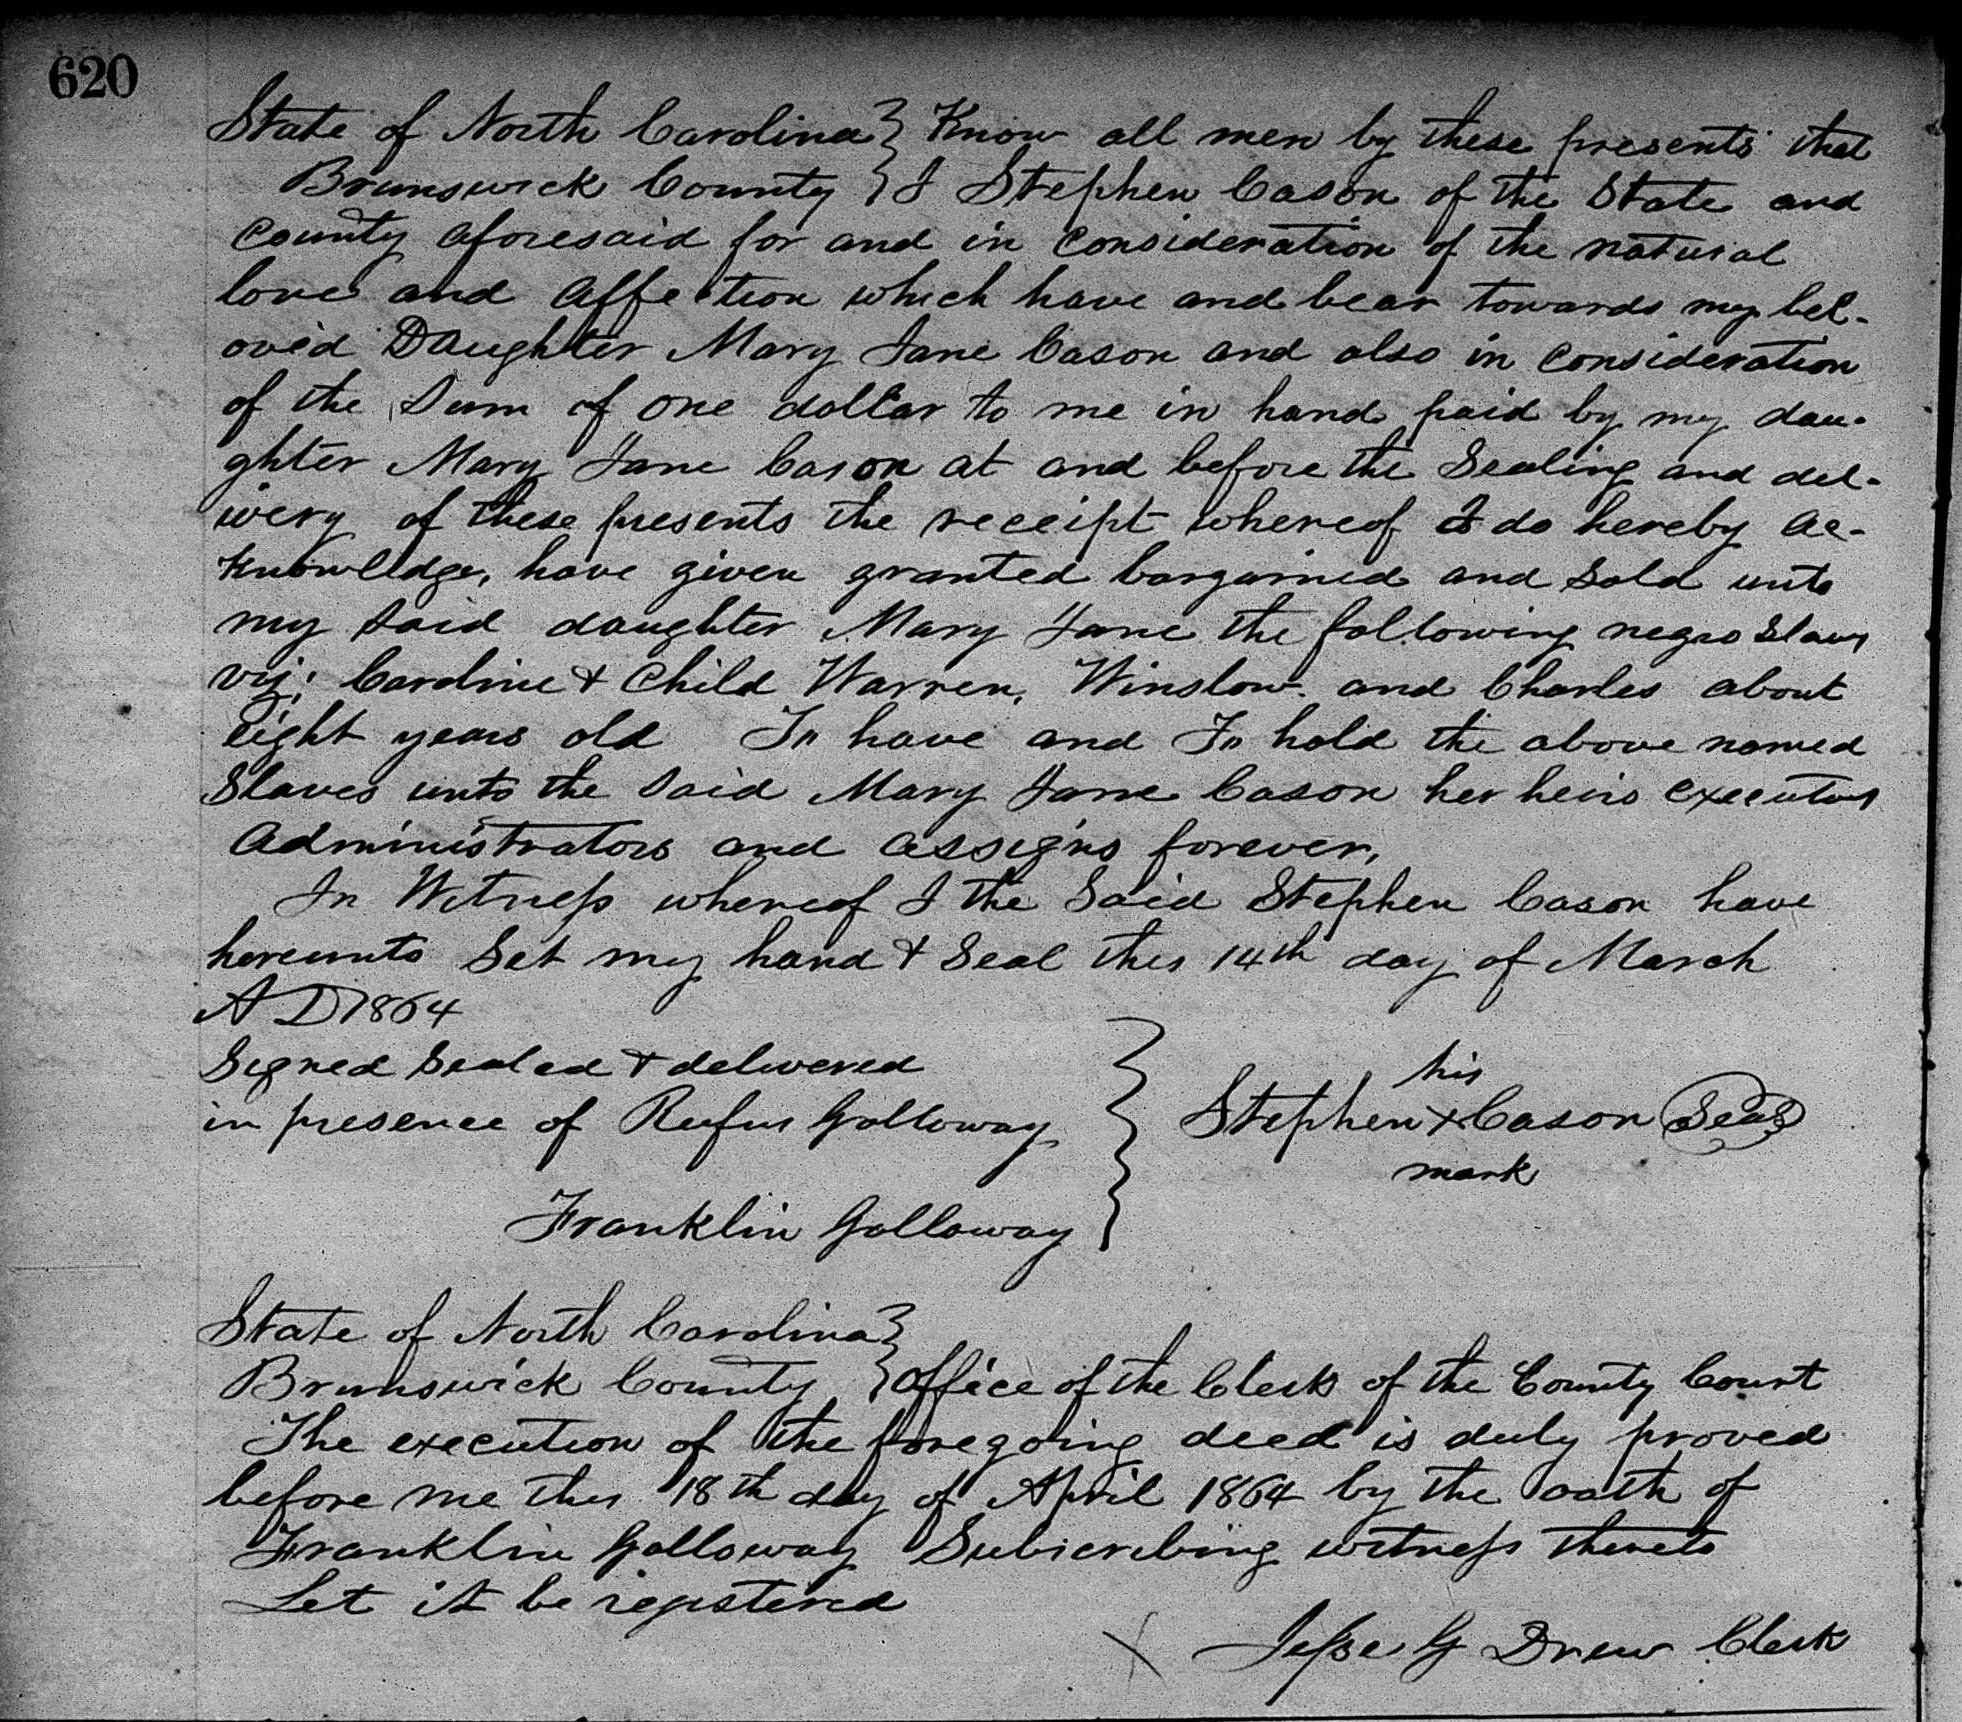 620
State of North Carolina } Know all men by these presents that
Brunswick County } I Stephen Cason of the State and
County aforesaid for and in consideration of the natural
love and affection which have and bear towards my bel-
oved Daughter Mary Jane Cason and also in consideration
of the Sum of one dollar to me in hand paid by my dau-
ghter Mary Jane Cason at and before the Sealing and del-
ivery of these presents the receipt whereof I do hereby ac-
knowledge, have given granted bargained and Sold unto
my Said daughter Mary Jane the following negro Slaves
viz; Caroline & Child Warren, Winslow. and Charles about
eight years old To have and To hold the above named
Slaves unto the Said Mary Jane Cason her heirs executors
administrators and assigns forever,
In Witness whereof I the Said Stephen Cason have
hereunto Set my hand & Seal this 14th day of March
A D 1864
Signed Sealed & delivered
in presence of Rufus Galloway
Franklin Galloway
his
Stephen x Cason Seal
mark
State of North Carolina }
Brunswick County } Office of the Clerk of the County Court
The execution of the foregoing deed is duly proved
before me this 18th day of April 1864 by the oath of
Franklin Galloway Subscribing witness thereto
Let it be registered
Jesse G Drew Clerk